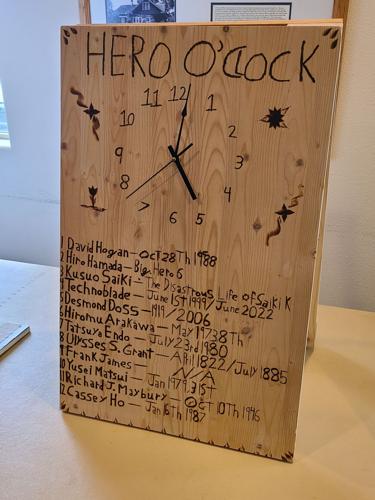 HERO O'CLOCK
11 12 1
10 2
9 3
8 4
7 6 5
1 David Hogan — Oct 28Th 1988
2 Hiro Hamada — Big Hero 6
3 Kusuo Saiki — The Disastrous Life of Saiki K
4 Technoblade — June 1st 1999/June 2022
5 Desmond Doss — 1919/2006
6 Hiromu Arakawa — May 1973 8Th
7 Tatsuya Endo — July 23rd 1980
8 Ulysses S. Grant — April 1822/July 1885
9 Frank James — N/A
10 Yusei Matsui — Jan 1979, 31st
11 Richard J. Maybury — Oct 10Th 1946
12 Cassey Ho — Jan 16Th 1987